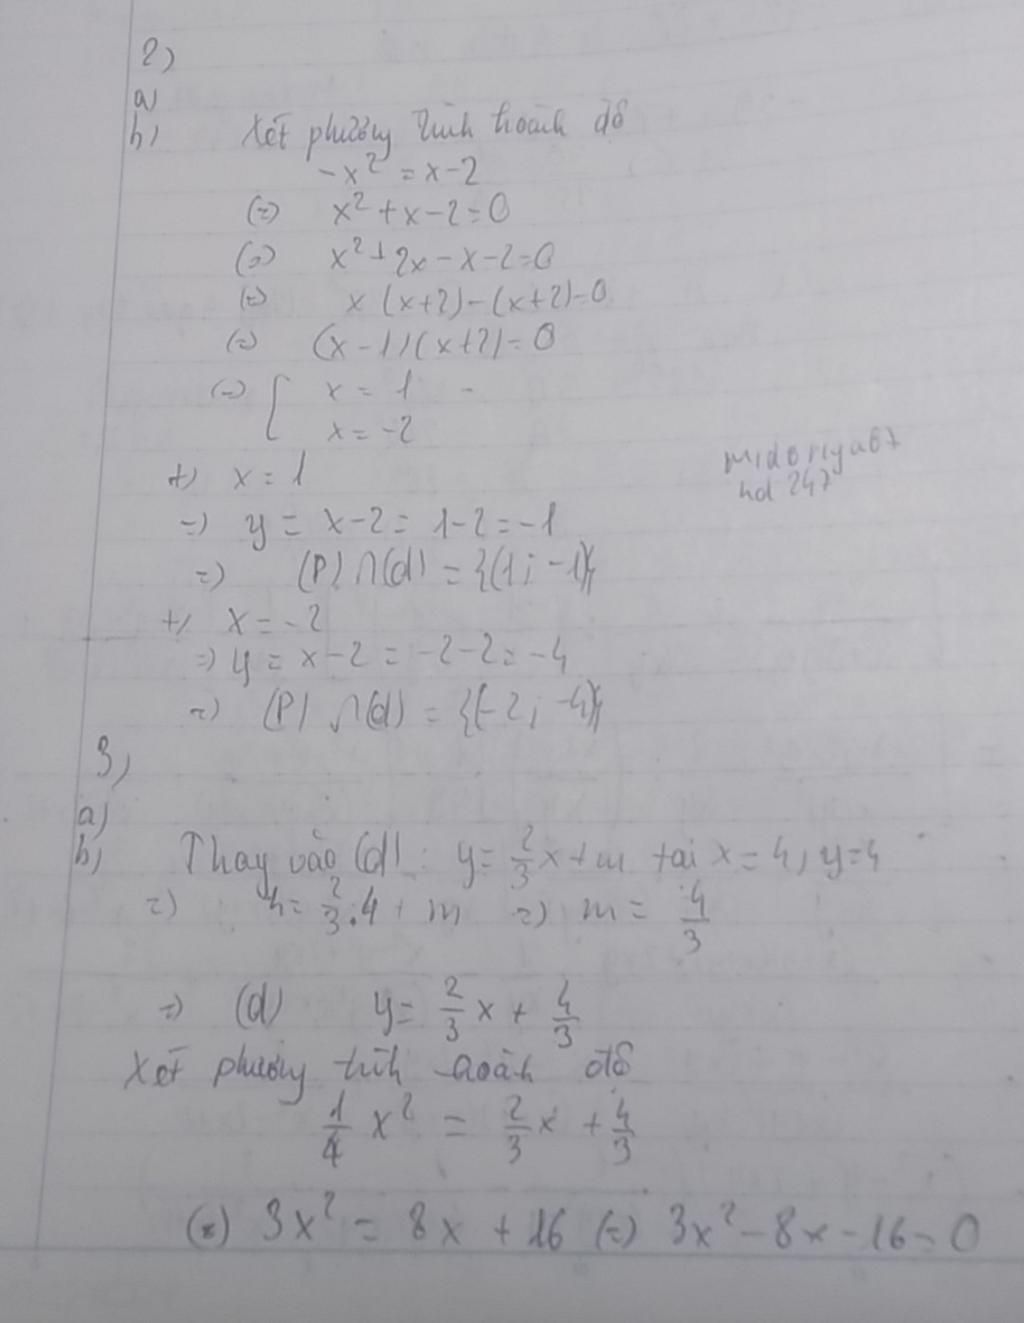 2)
a)
b) Xét phương trình hoành độ
-x² = x-2
(=) x² + x - 2 = 0
(=) x² + 2x - x - 2 = 0
(=) x (x+2) - (x+2) = 0
(=) (x-1)(x+2) = 0
(=) [ x = 1
x = -2
+) x = 1
=) y = x-2 = 1-2 = -1
=) (P) ∩ (d) = {(1; -1)}
+) x = -2
=) y = x-2 = -2-2 = -4
=) (P) ∩ (d) = {(-2; -4)}
midoriya67
hd 247
3)
a)
b) Thay vào (d): y = 2/3 x + m tại x = 4, y = 4
=) 4 = 2/3 . 4 + m =) m = 4/3
=) (d) y = 2/3 x + 4/3
Xét phương trình hoành độ
1/4 x² = 2/3 x + 4/3
(=) 3x² = 8x + 16 (=) 3x² - 8x - 16 = 0